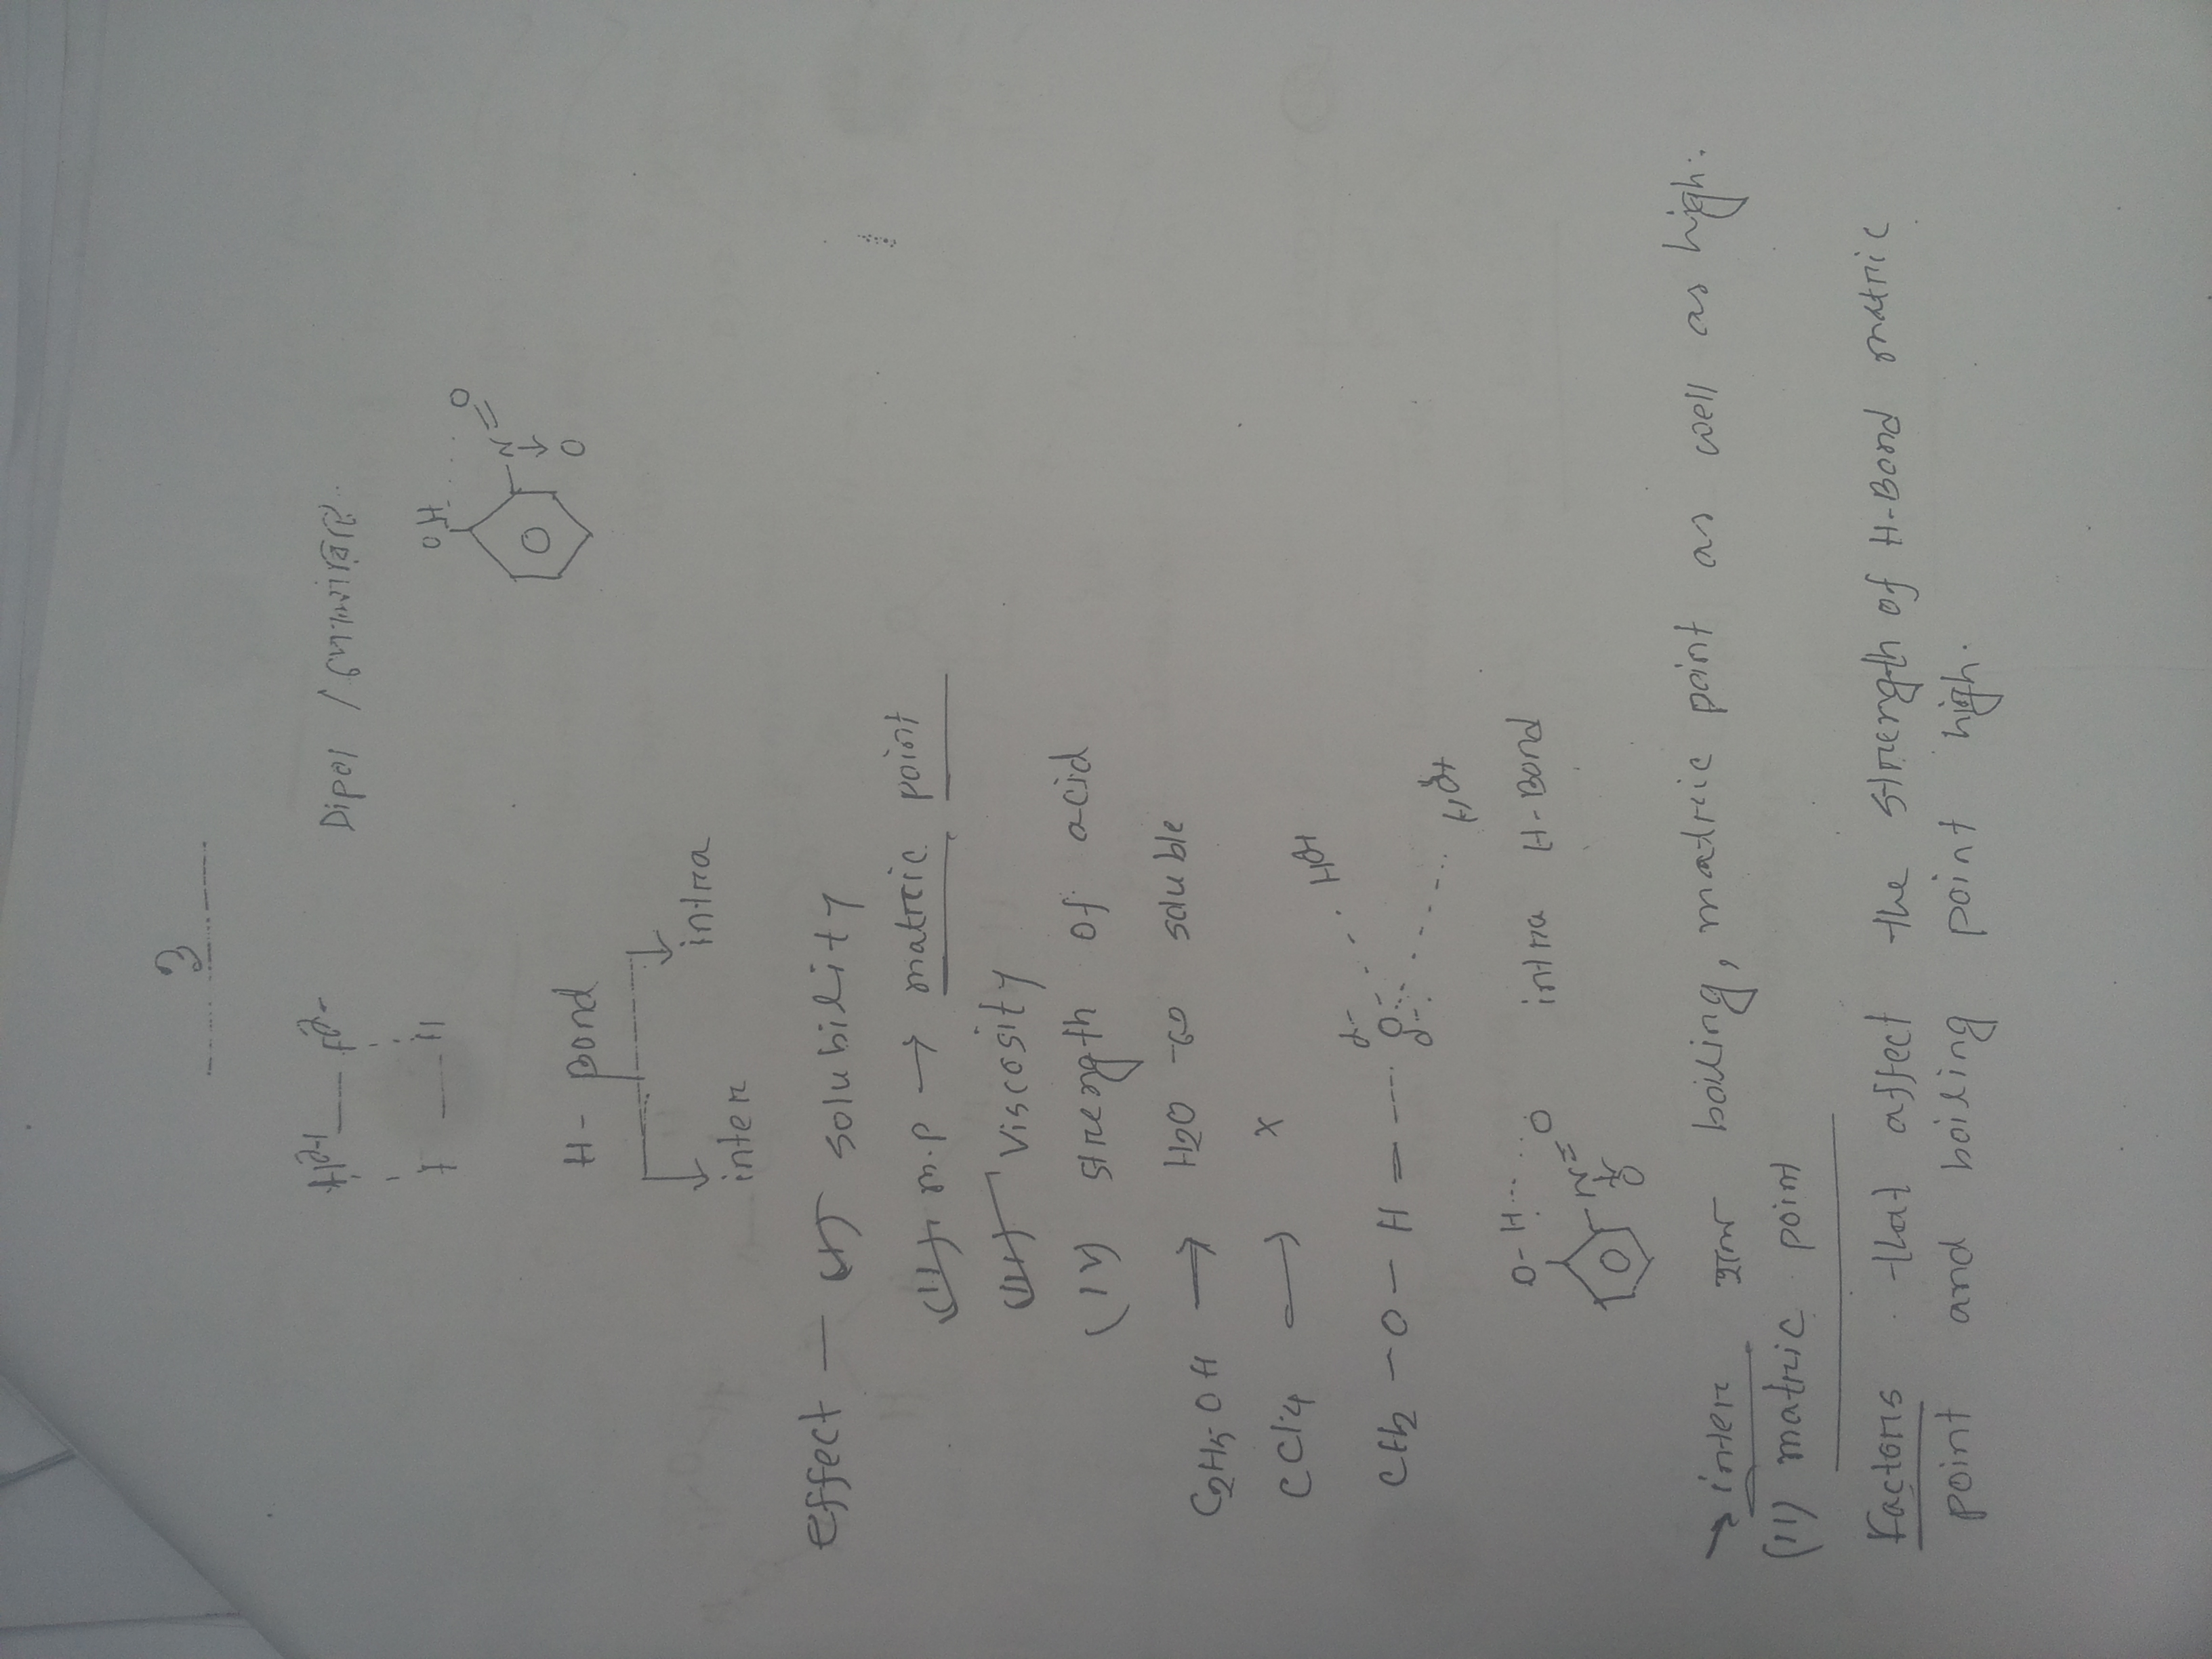 3
Hδ+ — Fδ-
Dipol / পোলারিটি
OH
N=O
↓
O
H - Bond
inter intra
effect — (I) solubility
(II) m.p → matric point
(III) Viscosity
(IV) strength of acid
C2H5OH → H2O তে soluble
CCl4 → ×
CH2 - O - H = ---- O
δ-
δ-
O - H ···· O
N=O
O
intra H-Bond
→ inter হলে boiling, matric point as well as high.
(II) matric point
Factors that affect the strength of H-Bond matric
point and boiling point high.